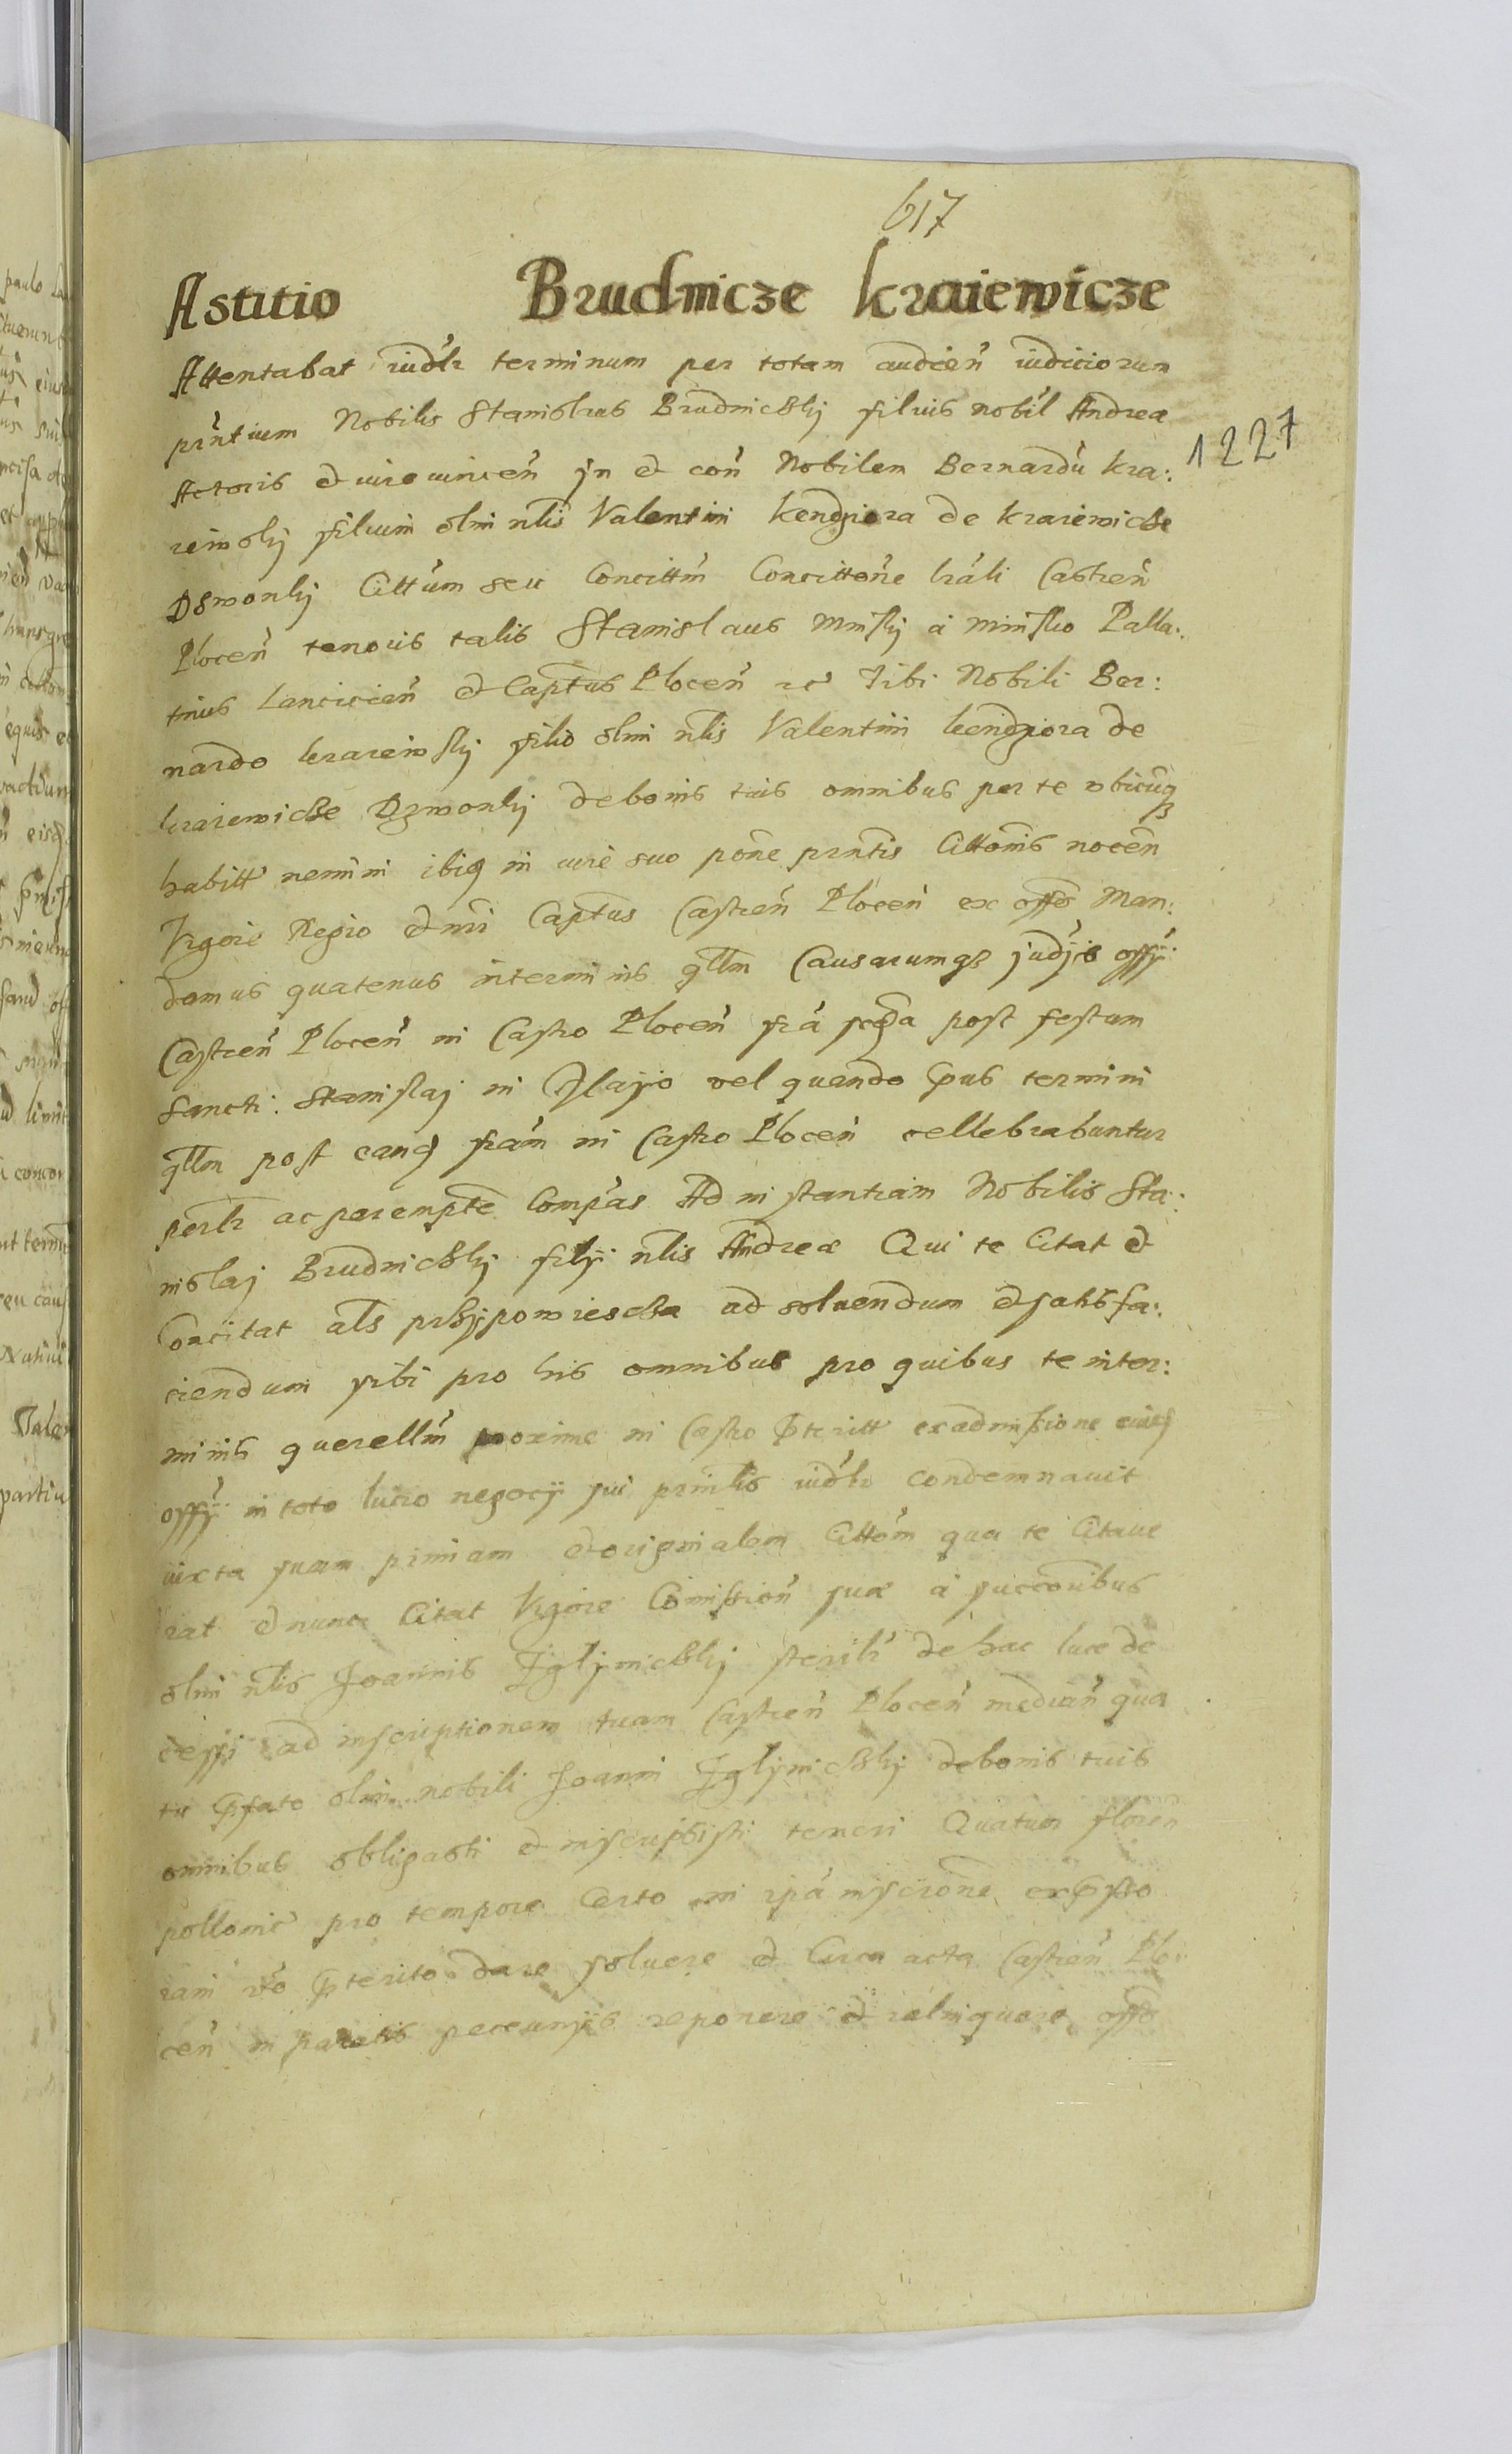 617
Astitio Brudnicze kraiewicze
Attentabat iudlr terminum per totam audien iudiciorum
prntium Nobilis Stanislaus Brudniczkij filius nobil Andreæ
1227
Actoris et iure vincen in et con Nobilem Bernardu kra:
iewskij filium olim nlis Valentini kendziora de kraiewicze
Dzwonkij Cittum seu Concittm Concittone lrali Castren
Plocen tenoris talis Stanislaus Minskij a Minsko Palla:
tinus Lancicien et Captus Plocen rc Tibi Nobili Ber:
nardo kraiewskij filio olim nlis Valentini kendziora de
kraiewicze Dzwonkij de bonis tuis omnibus per te vbicuq
habitt nemini ibiq in iure suo pone prntis Cittonis nocen
Vigore Regio et nri Captus Castren Plocen ex offo Man:
damus quatenus in terminis qllm Causarumqz judijs offij
Castren Plocen in Castro Plocen fra scda post festum
Sancti Stanislaj in Majo vel quando ipus termini
qllm post eanq fram in Castro Plocen cellebrabuntur
perlr ac peremptE Compas Ad instantiam Nobilis Sta:
nislaj Brudniczkij filij nlis Andreæ Qui te Citat et
Concitat als przijpowiescza ad soluendum et satisfa:
ciendum sibi pro his omnibus pro quibus te in ter:
minis querellm proxime in Castro pteritt ex admissione eiusq
offij in toto lucro negocij sui prinlis iudlr condemnauit
iuxta suam primam et originalem Cittom qua te Citaue
rat et nunc Citat Vigore Comission suæ a succoribus
olim nlis Joannis Jglijniczkij sterilr de hac luce de
cessi ad inscriptionem tuam Castren Plocen median qua
tu pfato olim nobili Joanni Jglijniczkij de bonis tuis
omnibus obligasti et inscripsisti teneri Quatuor floren
pollonic pro tempore Certo in ipa inscrone expsso
iam vo pterito dare soluere et Circa acta Castren Plo
cen in paratis pecunijs reponere et relinquere offo